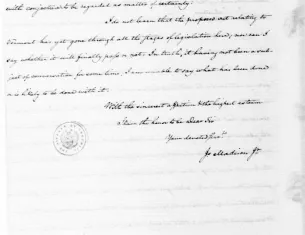 with conjecture to be regarded as matter of certainty.
I do not learn that the proposed act relating to
Vermont has yet gone through all the stages of legislation here, nor can I
say whether it will finally pass or not. In truth, it having not been a sub-
ject of conversation for some time, I am unable to say what has been done
or is likely to be done with it.
With the sincerest affection & the highest esteem
I have the honor to be Dear Sir
Your devoted Servt
Js. Madison Jr